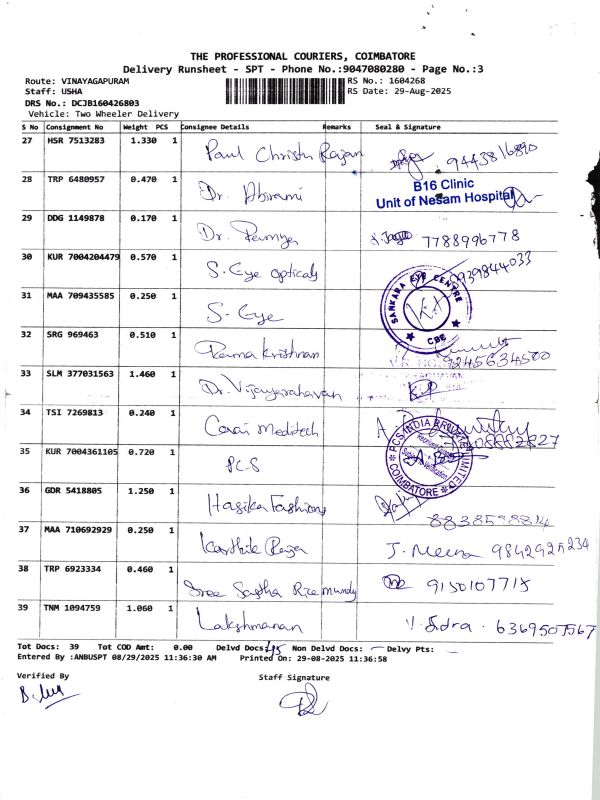 THE PROFESSIONAL COURIERS, COIMBATORE
Delivery Runsheet - SPT - Phone No.:9047080280 - Page No.:3
Route: VINAYAGAPURAM RS No.: 1604268
Staff: USHA RS Date: 29-Aug-2025
DRS No.: DCJB160426803
Vehicle: Two Wheeler Delivery
S No Consignment No Weight PCS Consignee Details Remarks Seal & Signature
27 HSR 7513283 1.330 1 Paul Christu Rajan 9443816890
28 TRP 6480957 0.470 1 Dr. Abirami B16 Clinic
Unit of Nesam Hospital
29 DDG 1149878 0.170 1 Dr. Ramya 7788996778
30 KUR 7004204479 0.570 1 S. Eye opticals 9939844033
31 MAA 709435585 0.250 1 S. Eye SANKARA EYE CENTRE CBE
32 SRG 969463 0.510 1 Rama Krishnan 9245634500
33 SLM 377031563 1.460 1 Dr. Vijayaraghavan
34 TSI 7269813 0.240 1 Covai Meditech
35 KUR 7004361105 0.720 1 PCS PCS INDIA PRIVATE LIMITED COIMBATORE
36 GDR 5418805 1.250 1 Hasika Fashions
37 MAA 710692929 0.250 1 Karthik Raja J. Meena 9842925234
38 TRP 6923334 0.460 1 Sree Sastha Rice mundy 9150107715
39 TNM 1094759 1.060 1 Lakshmanan 6369507567
Tot Docs: 39 Tot COD Amt: 0.00 Delvd Docs: Non Delvd Docs: Delvy Pts:
Entered By :ANBUSPT 08/29/2025 11:36:30 AM Printed On: 29-08-2025 11:36:58
Verified By Staff Signature